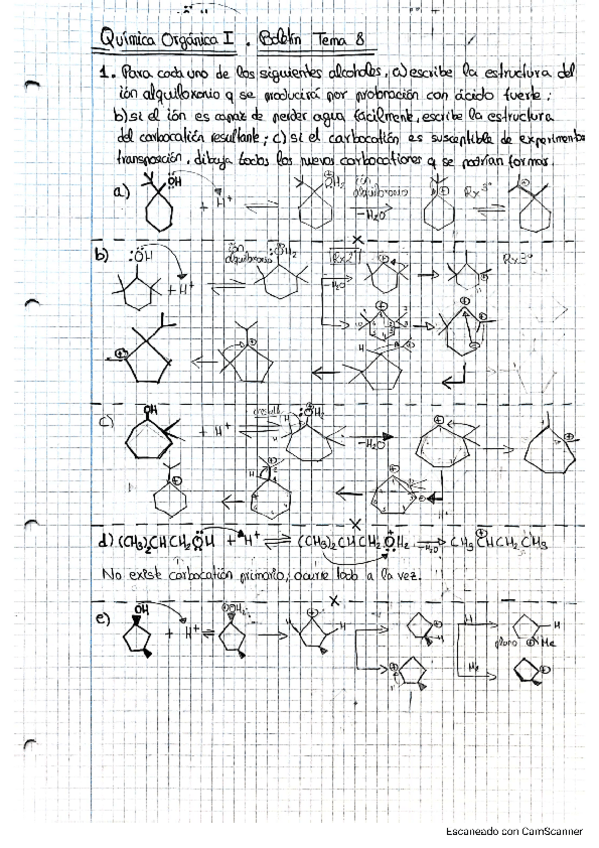 Química Orgánica I. Boletín Tema 8
1. Para cada uno de los siguientes alcoholes, a) escribe la estructura del
ión alquiloxonio q se producirá por protonación con ácido fuerte;
b) si el ión es capaz de perder agua facilmente, escribe la estructura
del carbocatión resultante; c) si el carbocatión es susceptible de experimentar
transposición, dibuja todos los nuevos carbocationes q se podrían formar.
a) OH + H⁺ OH₂ ión alquiloxonio -H₂O Rx 3°
b) :ÖH + H⁺ ión alquiloxonio :OH₂ Rx 2° -H₂O Rx 3°
H
c) OH + H⁺ H :OH₂ -H₂O
H
d) (CH₃)₂CHCH₂ÖH + H⁺ ⇌ (CH₃)₂CHCH₂ÖH₂ -H₂O CH₃CHCH₂CH₃
No existe carbocatión primario, ocurre todo a la vez.
e) OH + H⁺ OH₂ H H H H Me
Me
Escaneado con CamScanner